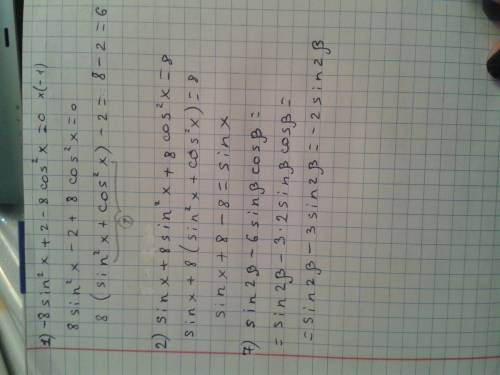 1) -8 sin²x + 2 - 8 cos²x = 0 ×(-1)
8 sin²x - 2 + 8 cos²x = 0
8 (sin²x + cos²x) - 2 = 8 - 2 = 6
2) sinx + 8 sin²x + 8 cos²x = 8
sinx + 8 (sin²x + cos²x) = 8
sinx + 8 - 8 = sinx
7) sin2β - 6 sinβ cosβ =
= sin2β - 3·2 sinβ cosβ =
= sin2β - 3 sin2β = -2 sin2β